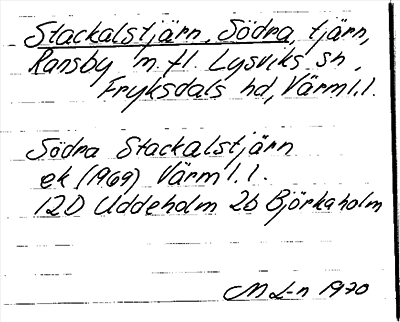 Stackalstjärn, Södra, tjärn,
Ransby m. fl. Lysviks sn,
Fryksdals hd, Värml. l.
Södra Stackalstjärn
ek (1969) Värml. l.
12D Uddeholm 2b Björkaholm
M L-n 1970